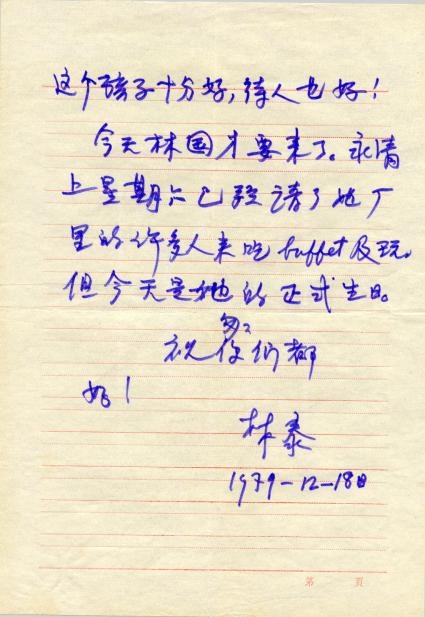 这个孩子十分好，待人也好！
今天林国才要来了。永清
上星期六已经请了她厂
里的许多人来吃buffet及玩。
但今天是她的正式生日。
祝你们都
好！
林泰
1979-12-18日
第 页